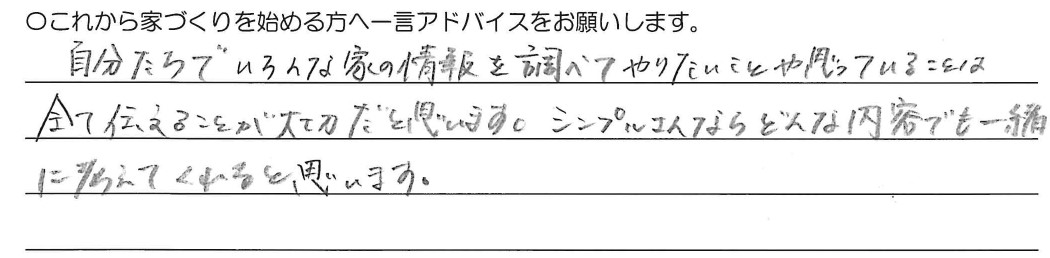 ○これから家づくりを始める方へ一言アドバイスをお願いします。
自分たちでいろんな家の情報を調べてやりたいことや思っていることは
全て伝えることが大切だと思います。シンプルさんならどんな内容でも一緒
に考えてくれると思います。